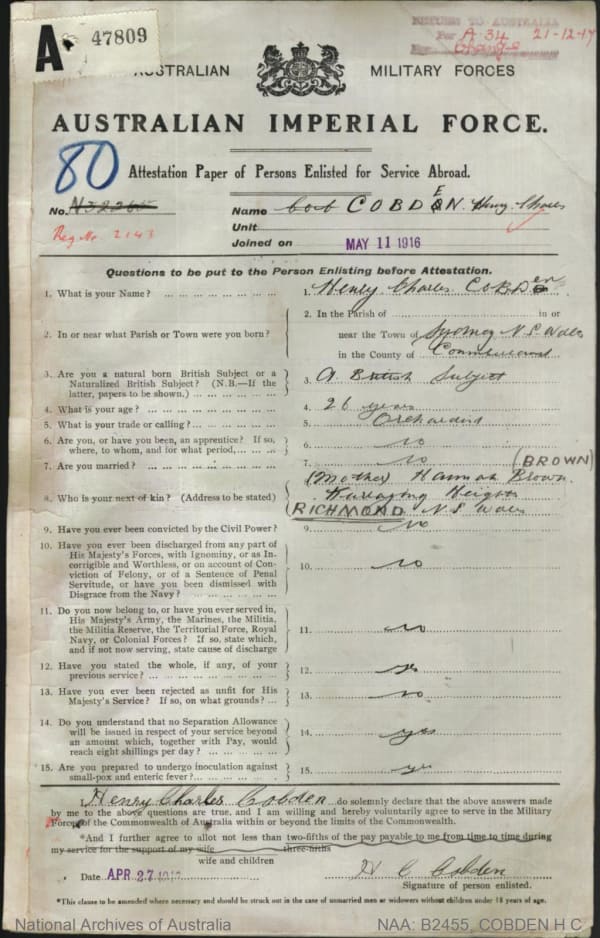 A 47809
RETURN TO AUSTRALIA
Per A 34 21-12-17
For Change
AUSTRALIAN MILITARY FORCES
AUSTRALIAN IMPERIAL FORCE.
80
Attestation Paper of Persons Enlisted for Service Abroad.
No. N32265 Name COBDEN. Henry Charles
Reg No. 2143
Unit
Joined on MAY 11 1916
Questions to be put to the Person Enlisting before Attestation.
1. What is your Name? 1. Henry Charles COBDen
2. In or near what Parish or Town were you born? 2. In the Parish of in or
near the Town of Sydney N. S. Wales
in the County of
3. Are you a natural born British Subject or a Naturalized British Subject? (N.B.—If the latter, papers to be shown.) 3. A British Subject
4. What is your age? 4. 26 years
5. What is your trade or calling? 5. Orchardist
6. Are you, or have you been, an apprentice? If so, where, to whom, and for what period, 6. no
7. Are you married? 7. no
8. Who is your next of kin? (Address to be stated) (Mother) Hannah Brown. (BROWN)
Heights
RICHMOND N. S. Wales
9. Have you ever been convicted by the Civil Power? 9. no
10. Have you ever been discharged from any part of His Majesty's Forces, with Ignominy, or as Incorrigible and Worthless, or on account of Conviction of Felony, or of a Sentence of Penal Servitude, or have you been dismissed with Disgrace from the Navy? 10. no
11. Do you now belong to, or have you ever served in, His Majesty's Army, the Marines, the Militia, the Militia Reserve, the Territorial Force, Royal Navy, or Colonial Forces? If so, state which, and if not now serving, state cause of discharge 11. no
12. Have you stated the whole, if any, of your previous service? 12. yes
13. Have you ever been rejected as unfit for His Majesty's Service? If so, on what grounds? 13. no
14. Do you understand that no Separation Allowance will be issued in respect of your service beyond an amount which, together with Pay, would reach eight shillings per day? 14. yes
15. Are you prepared to undergo inoculation against small-pox and enteric fever? 15. yes
I, Henry Charles Cobden do solemnly declare that the above answers made
by me to the above questions are true, and I am willing and hereby voluntarily agree to serve in the Military
Forces of the Commonwealth of Australia within or beyond the limits of the Commonwealth.
*And I further agree to allot not less than two-fifths of the pay payable to me from time to time during
my service for the support of my wife three-fifths
wife and children
Date APR 27 H C Cobden
Signature of person enlisted.
*This clause to be amended where necessary and should be struck out in the case of unmarried men or widowers without children under 18 years of age.
National Archives of Australia NAA: B2455, COBDEN H C